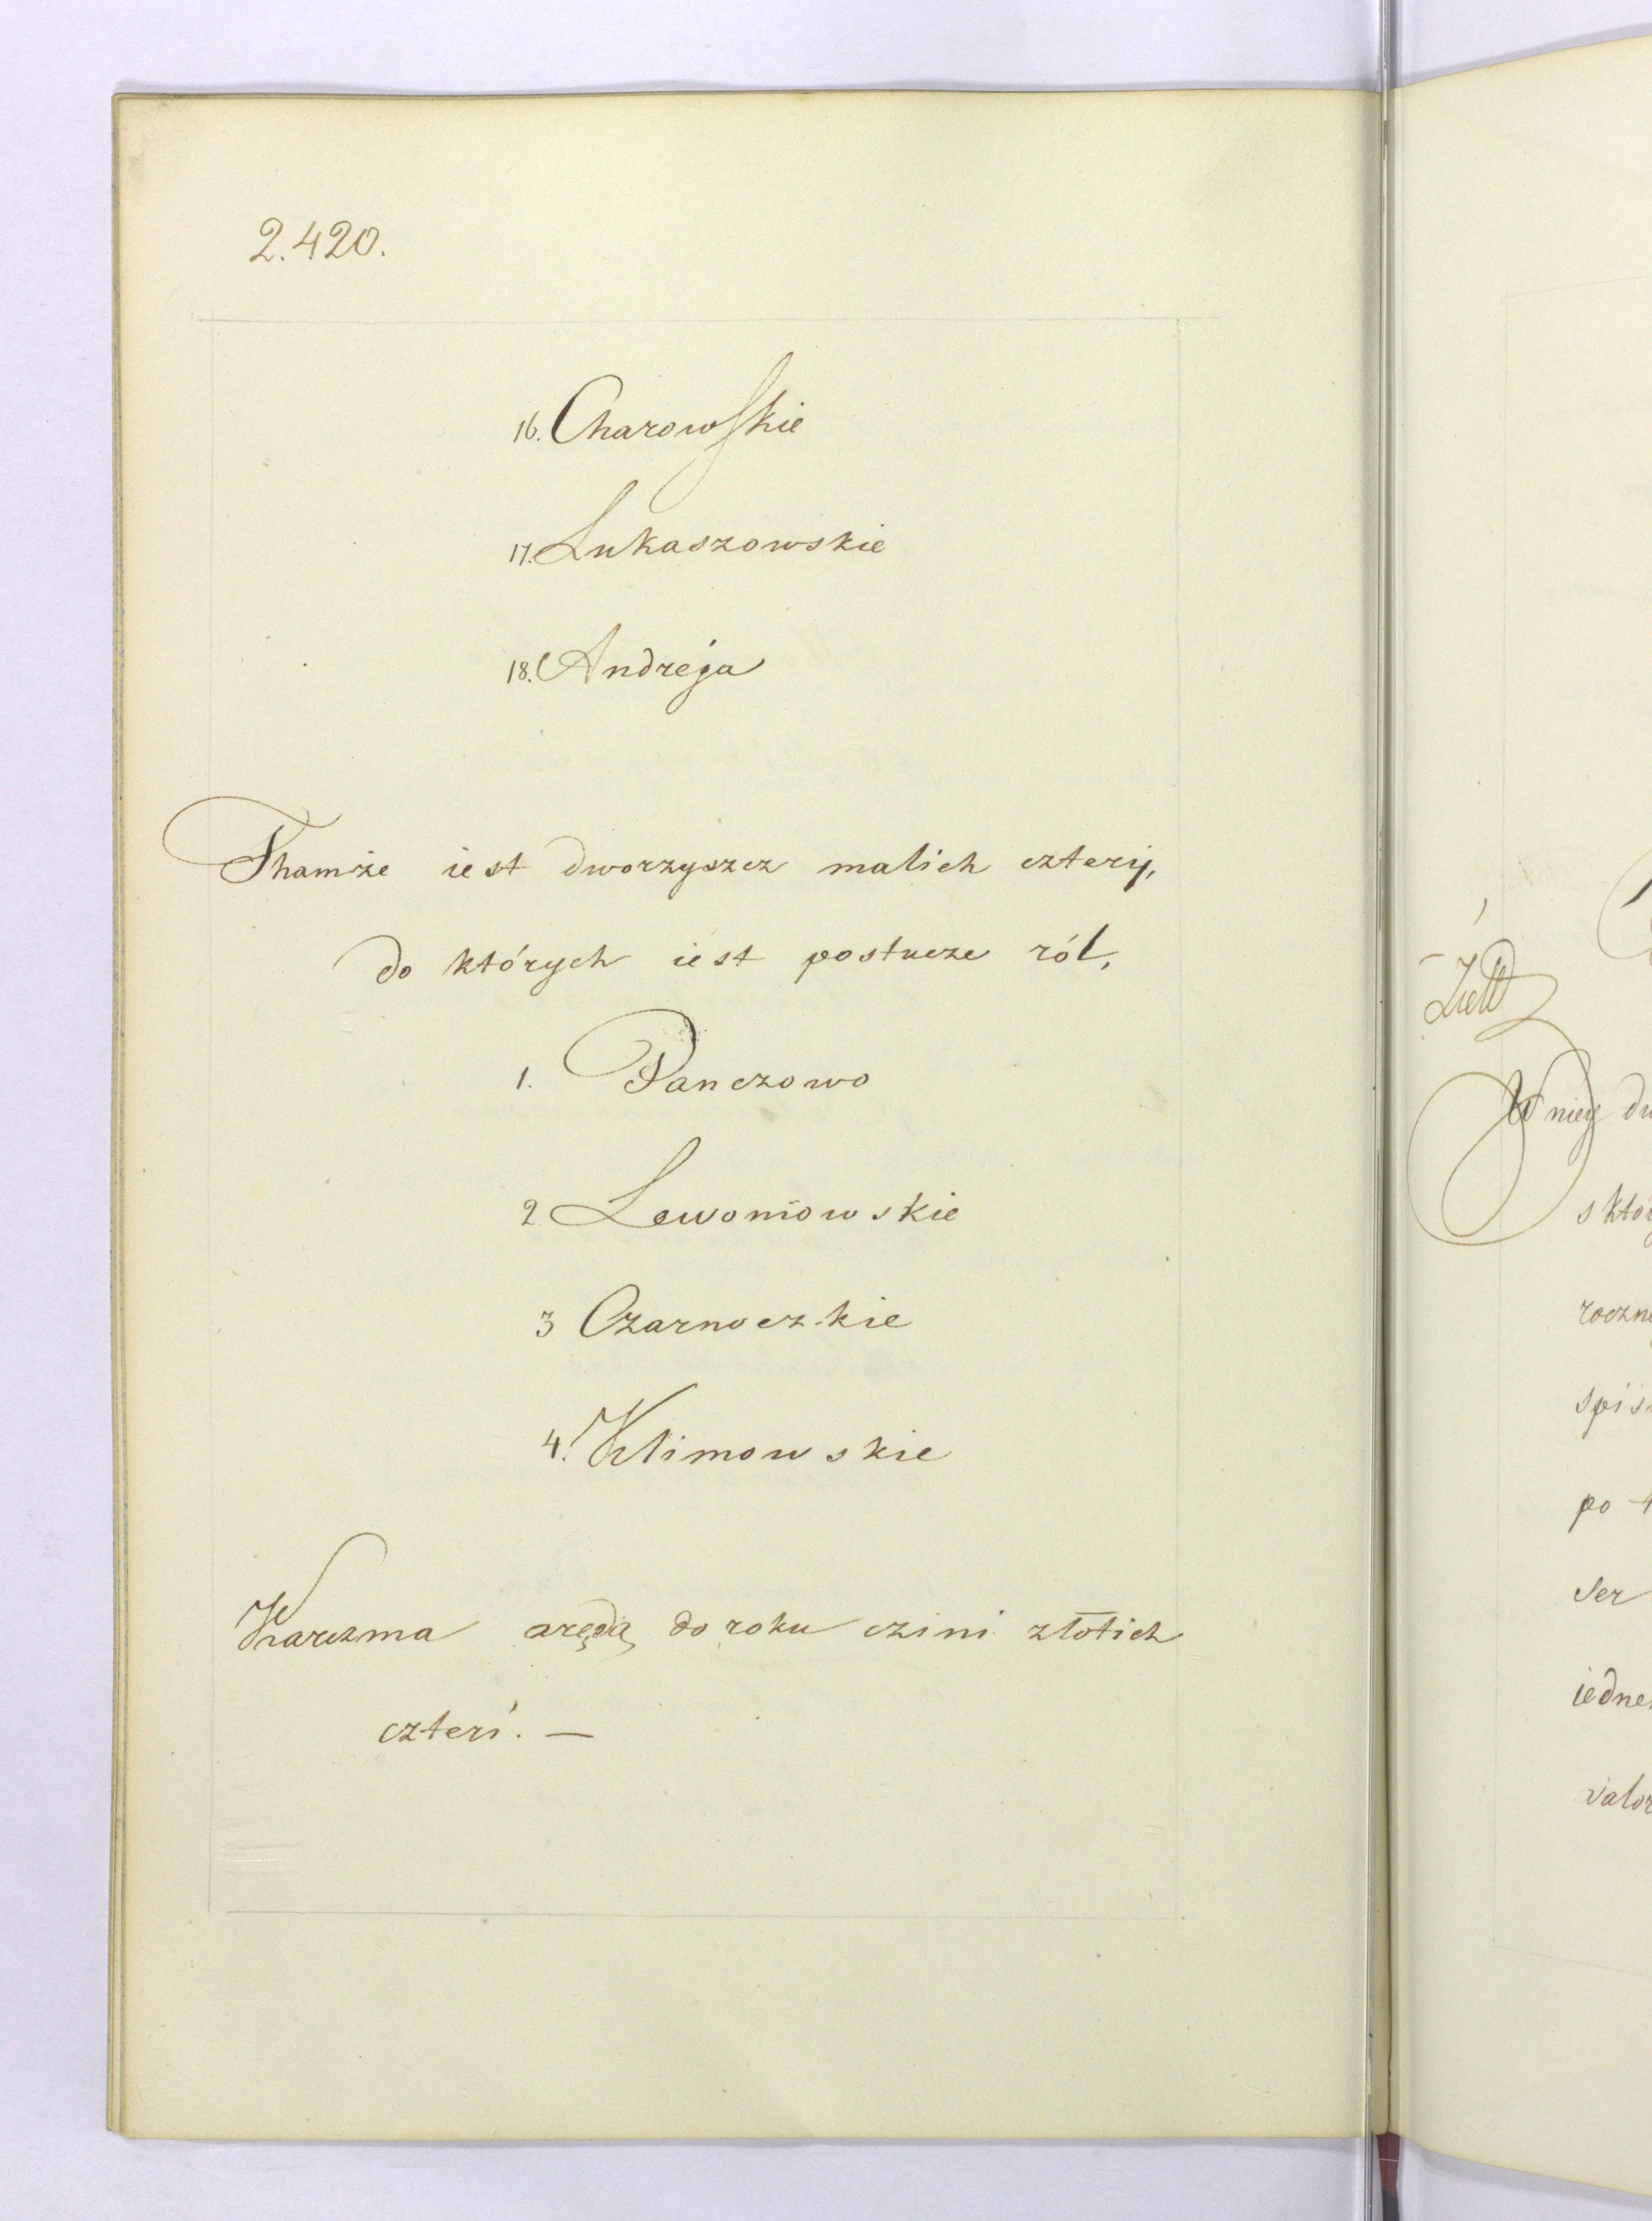 2.420.
16. Charowskie
17. Lukaszowskie
18. Andreja
Thamże iest dworzyszcz malich czterij,
do których iest postucze ról,
1. Panczowo
2 Lewoniowskie
3 Czarnoczkie
4. Klimowskie
Karczma arędą do roku czini złotich
czteri. —
W niey
s któ
roczn
spis
po
ser
iedne
valor